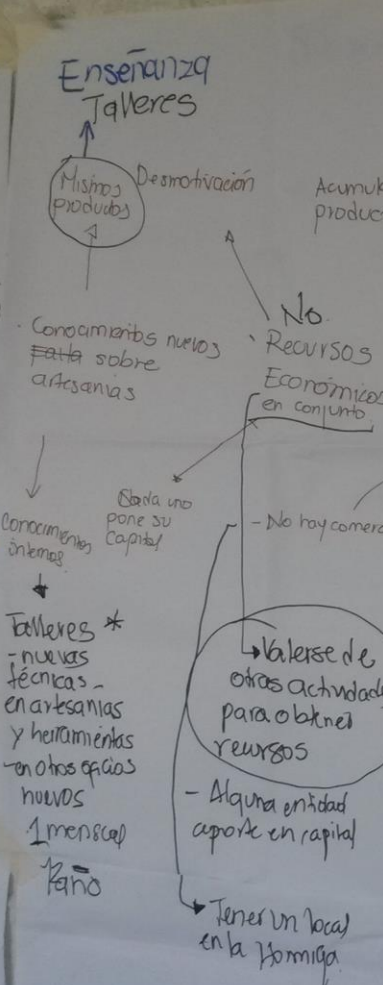 Enseñanza
Talleres
Mismos
productos
Desmotivación
Acumul
produc
No
Recursos
Económicos
en conjunto
· Conocamientos nuevos
Falta sobre
artesanias
Cada uno
pone su
Capital
- No hay comerc
Conocimientos
internos
Talleres *
- nuevas
técnicas -
en artesanias
y herramientas
- en otros oficios
nuevos
1 mensual
1 año
Valerse de
otras actividad
para obtener
recursos
- Alguna entidad
aporte en capital
Tener un local
en la Hormiga